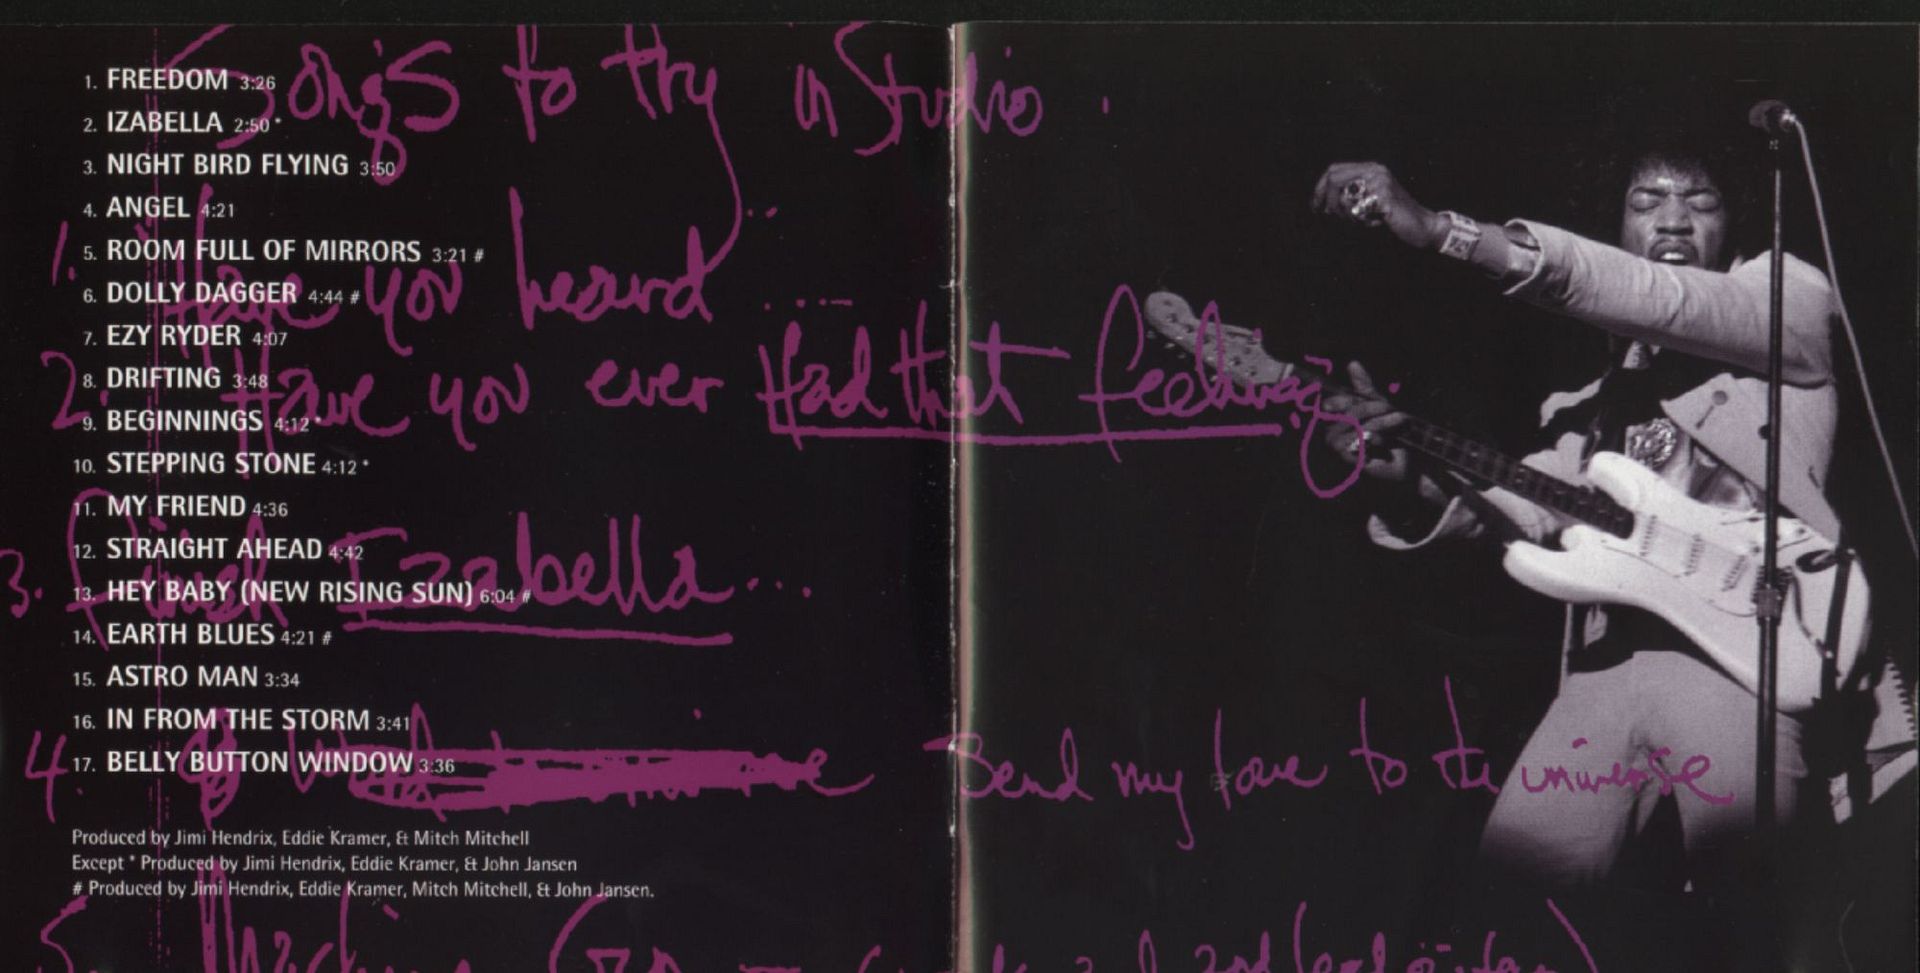 1. FREEDOM 3:26
2. IZABELLA 2:50 *
3. NIGHT BIRD FLYING 3:50
4. ANGEL 4:21
5. ROOM FULL OF MIRRORS 3:21 #
6. DOLLY DAGGER 4:44 #
7. EZY RYDER 4:07
8. DRIFTING 3:48
9. BEGINNINGS 4:12 *
10. STEPPING STONE 4:12 *
11. MY FRIEND 4:36
12. STRAIGHT AHEAD 4:42
13. HEY BABY (NEW RISING SUN) 6:04 #
14. EARTH BLUES 4:21 #
15. ASTRO MAN 3:34
16. IN FROM THE STORM 3:41
17. BELLY BUTTON WINDOW 3:36
Produced by Jimi Hendrix, Eddie Kramer, & Mitch Mitchell
Except * Produced by Jimi Hendrix, Eddie Kramer, & John Jansen
# Produced by Jimi Hendrix, Eddie Kramer, Mitch Mitchell, & John Jansen.
Songs to try in Studio.
1. Have you heard ....
2. Have you ever Had that feeling.
3. Finish Izabella...
4. Send my love to the universe
5. Machine Gun